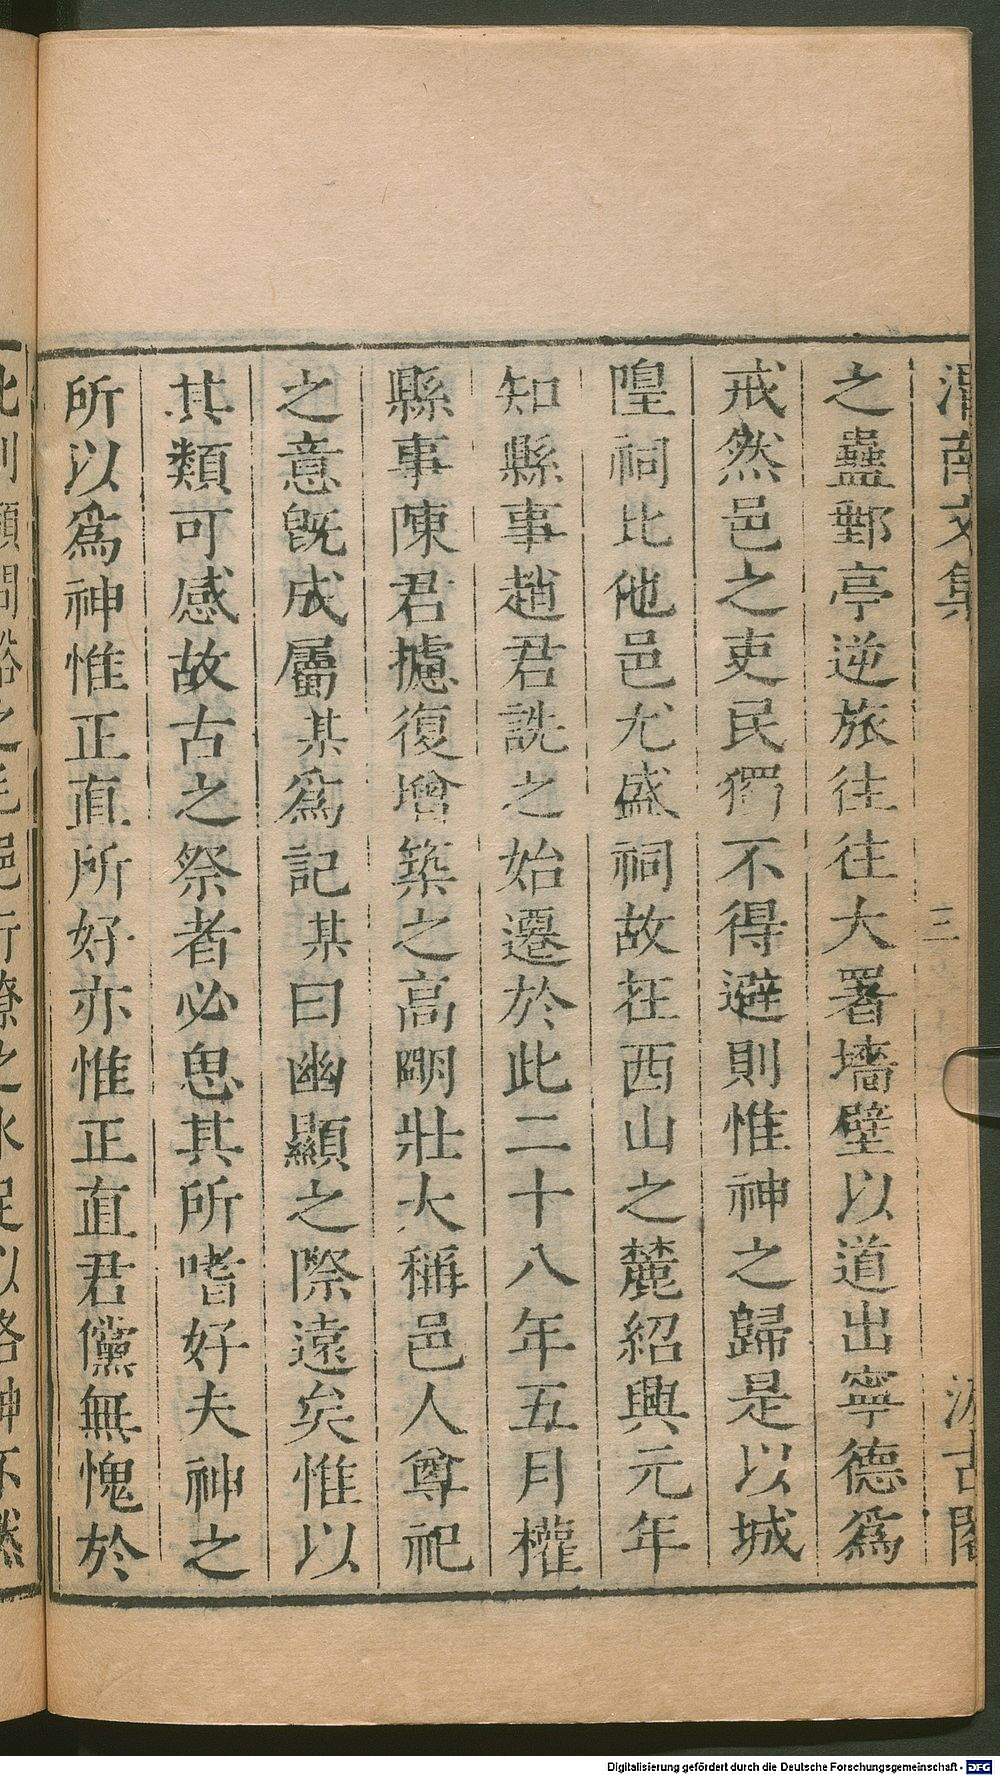 渭南文集 三 汲古閣
之蠱鄞亭逆旅往往大署墻壁以道出寧德爲
戒然邑之吏民獨不得避則惟神之歸是以城
隍祠比他邑尤盛祠故在西山之麓紹興元年
知縣事趙君詵之始遷於此二十八年五月權
縣事陳君攄復增築之高明壯大稱邑人尊祀
之意旣成屬某爲記某曰幽顯之際遠矣惟以
其類可感故古之祭者必思其所嗜好夫神之
所以爲神惟正直所好亦惟正直君儻無愧於
Digitalisierung gefördert durch die Deutsche Forschungsgemeinschaft - DFG